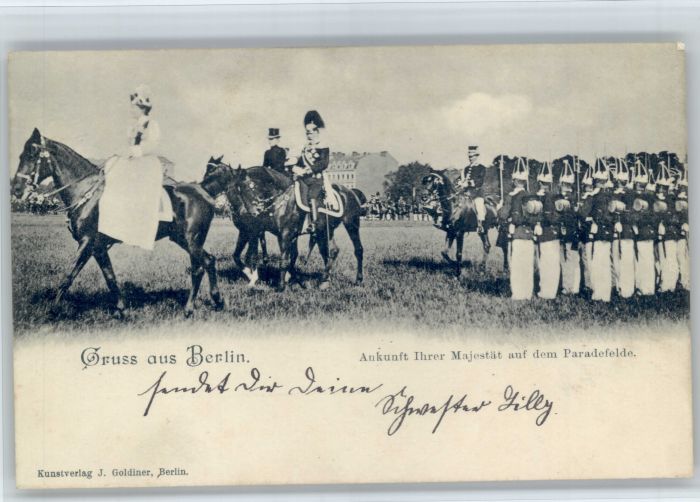 Gruss aus Berlin.
Ankunft Ihrer Majestät auf dem Paradefelde.
sendet Dir Deine
Schwester Lilly.
Kunstverlag J. Goldiner, Berlin.